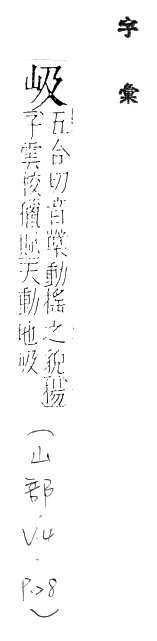 字彙
岋
五合切音動搖之貌揚
子雲校獵賦天動地岋
(山部.V.4.P.28)